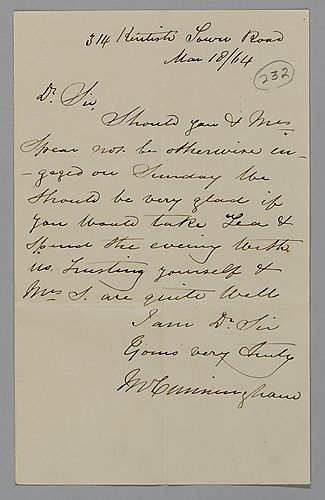 314 Kentish Town Road
Mar 18/64
232
Dr. Sir,
Should you & Mrs
Spear not be otherwise en-
-gaged on Sunday We
should be very glad if
you would take Tea &
spend the evening with
us. Trusting yourself &
Mrs S. are quite well
I am Dr. Sir
Yours very truly
W Cunningham